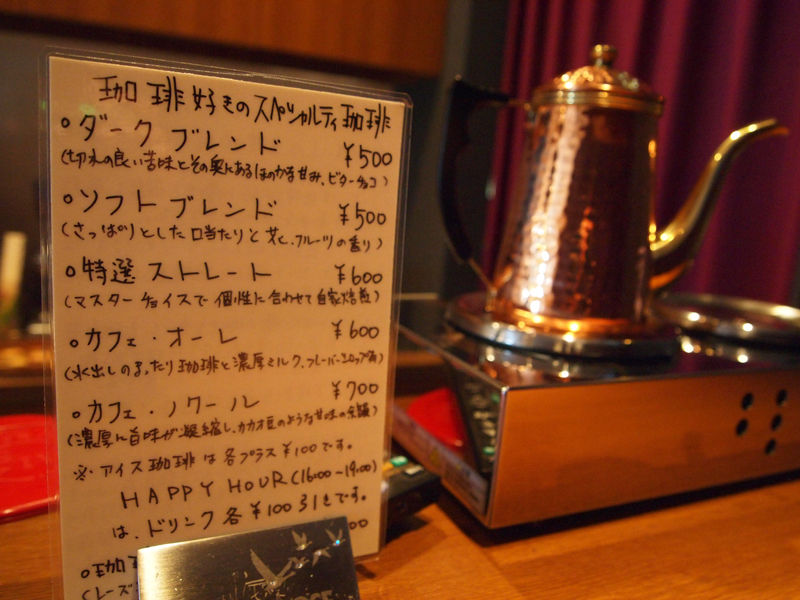 珈琲好きのスペシャルティ珈琲
○ダーク ブレンド ¥500
(切れの良い苦味とその奥にあるほのかな甘み、ビターチョコ)
○ソフト ブレンド ¥500
(さっぱりとした口当たりと花、フルーツの香り)
○特選 ストレート ¥600
(マスターチョイスで個性に合わせて自家焙煎)
○カフェ・オーレ ¥600
(水出しのまったり珈琲と濃厚ミルク、フレーバーシロップ
○カフェ・ノワール ¥700
(濃厚に旨味が凝縮し、カカオ豆のような甘味の余韻)
※アイス珈琲は各プラス¥100です。
HAPPY HOUR(16:00-19:00)
は、ドリンク各¥100引きです。
00
○珈
(レーズ